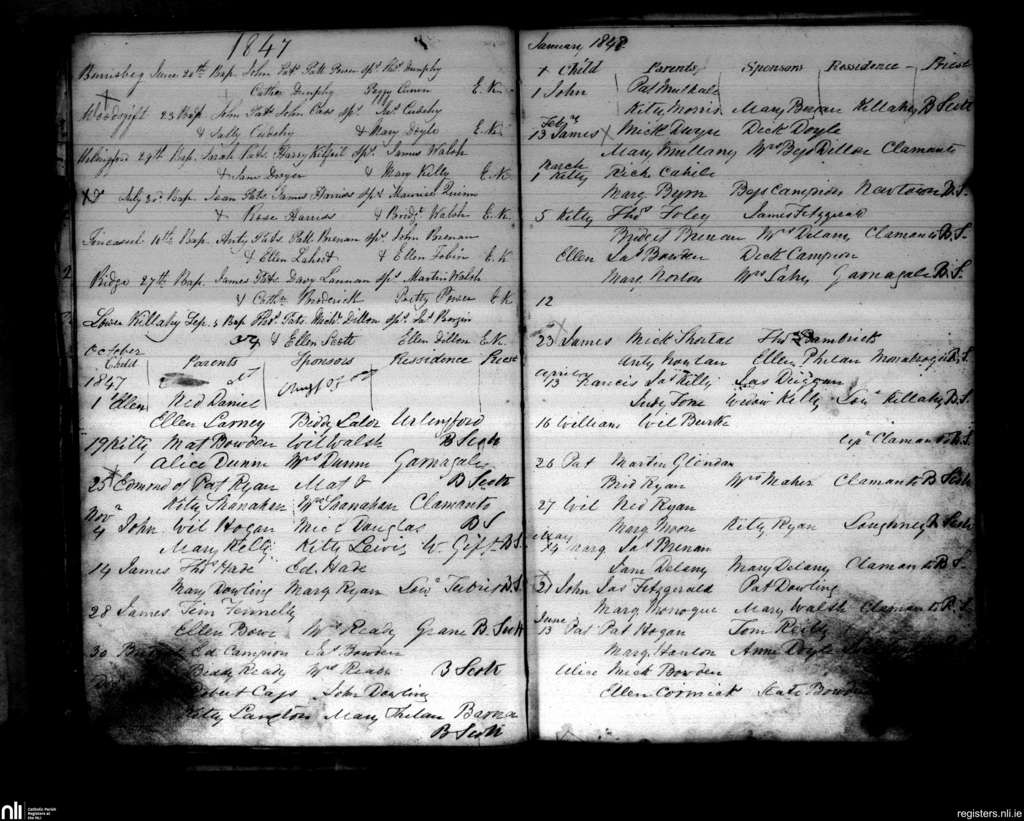 1847
June 20th Bap. John Pats Patt Power Sprs Thos Dunphy
Cathn Dunphy Peggy E. K.
23 Bap. John Pats John Cass Sprs Cuddihy
& Sally Cuddihy & Mary Doyle E. K.
29th Bap. Sarah Pats Harry Sprs James Walsh
& Jane Dwyer & Mary Kelly E. K.
July 20th Bap. Pats James Harriss Sprs Maurice Quinn
& Rose Harriss & Bridgt Walsh E. K.
10th Bap. Anty Pats Patt Brenan Sprs John Brenan
& Ellen Lahert & Ellen Tobin E. K
Ridge 27th Bap. James Pats Davy Lannan Sprs Martin Walsh
& Cathn Broderick Betty Power E K
Lower Killahy Sep. 3 Bap Thos Pats Michl Dillon Sprs Jas
& Ellen Scott Ellen Dillon E. K.
October
Child Parents Sponsors Ressidence Priest
1847
1 Ellen Ned Daniel
Ellen Larney Biddy Lalor Urlingford
19 Kitty Mat Bowden Wil Walsh B Scott
Alice Dunn Mrs Dunn Garnagale
25 Edmond of Pat Ryan Mat & B Scott
Kitty Shanahan Mrs Shanahan Clamanto
Novr
4 John Wil Hogan Mic l Douglas B S
Mary Kelly Kitty Lewis W. Gift B S.
14 James Thos Hade Ed. Hade
Mary Dowling Marg Ryan Low B. S
28 James Tim Fennelly
Ellen Bowe Mrs Ready Grane B. Scott
30 Ed. Campion Jas Bowden
Biddy Ready Mrs Ready B Scott
Robert Cass John Dowling
Kitty Langton Mary Phelan Barna
B Scott
January 1848
Child Parents Sponsors Ressidence Priest
1 John Pat
Kitty Morris Mary Killahy B Scott
Feby
13 James Mick Dwyer Dick Doyle
Mary Mullany Mrs Bess Dillon Clamanto
March
1 Kitty Rick Cahill
Mary Byrn Bess Campion Newtown B. S.
5 Kitty Thos Foley James Fitzgerald
Bridget Brenan Mrs Delany Clamanto B. S.
Ellen Jas Bowden Dick Campion
Mary Norton Mrs Garnagale B. S.
12
23 James Mick Shortal Thos
Anty Nowlan Ellen Phelan B. S.
April
13 Francis Jas Kelly Jas Duggan
Judy Tone Widow Kelly Low Killahy B. S.
16 William Wil Burke
Clamanto B. S.
26 Pat Martin
Brid Ryan Mrs Maher Clamanto B Scott
27 Wil Ned Ryan
Marg Moore Kitty Ryan Loughney B Scott
May
14 Marg Jas Brenan
Jam Delany Mary Delany Clamanto B. S.
21 John Jas Fitzgerald Pat Dowling
Marg Monogue Mary Walsh Clamanto B. S
June
13 Pat Pat Hogan Tom Reilly
Marg Hanlon Anne Doyle
Alice Mick Bowden
Ellen Cormick Kate Bowden
nli
Catholic Parish
Registers at
the NLI
registers.nli.ie